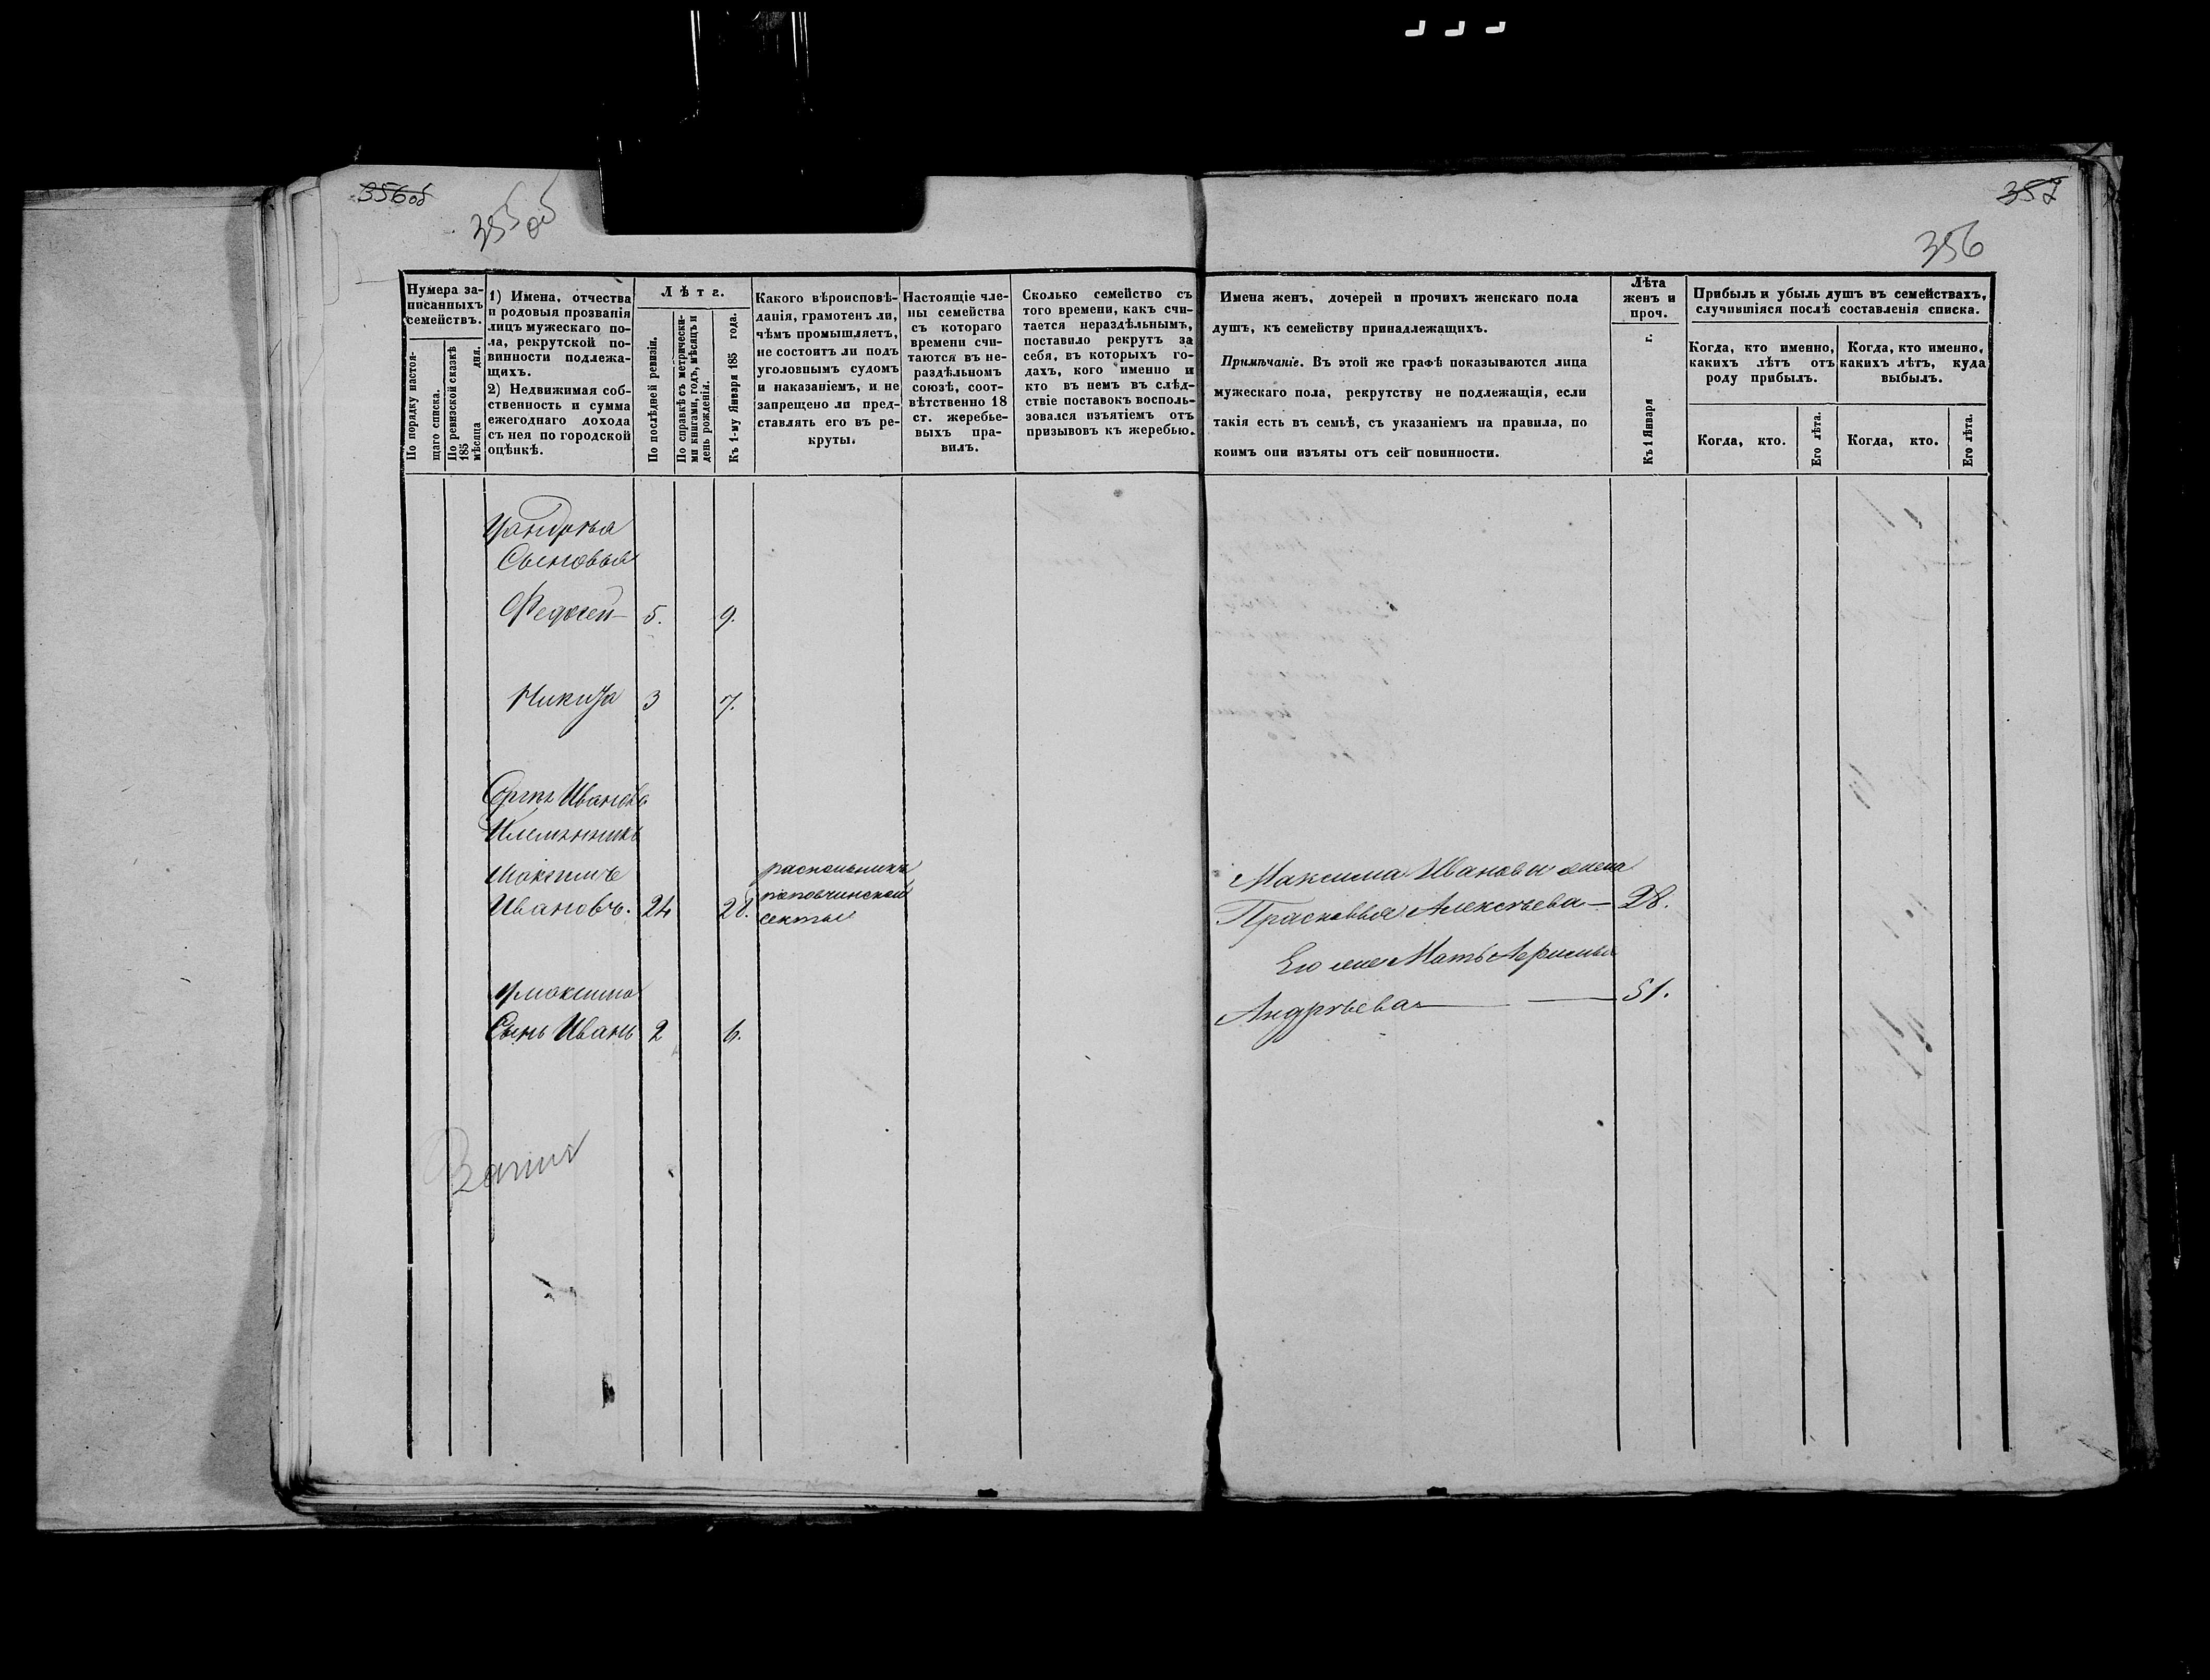 356 об
355 об
Нумера за-
писанныхъ
семействъ.
По порядку настоя-
щаго списка.
По ревизской сказкѣ
185 дня.
мѣсяца
1) Имена, отчества
и родовыя прозванія
лицъ мужескаго по-
ла, рекрутской по-
винности подлежа-
щихъ.
2) Недвижимая соб-
ственность и сумма
ежегоднаго дохода
съ нея по городской
оцѣнкѣ.
Лѣта.
По послѣдней ревизіи.
По справкѣ съ метрически-
ми книгами, годъ, мѣсяцъ и
день рожденія.
Къ 1-му Января 185 года.
Какого вѣроисповѣ-
данія, грамотенъ ли,
чѣмъ промышляетъ,
не состоитъ ли подъ
уголовнымъ судомъ
и наказаніемъ, и не
запрещено ли пред-
ставлять его въ ре-
круты.
Настоящіе чле-
ны семейства
съ котораго
времени счи-
таются въ не-
раздѣльномъ
союзѣ, соот-
вѣтственно 18
ст. жеребье-
выхъ пра-
вилъ.
Сколько семейство съ
того времени, какъ счи-
тается нераздѣльнымъ,
поставило рекрутъ за
себя, въ которыхъ го-
дахъ, кого именно и
кто въ немъ въ слѣд-
ствіе поставокъ восполь-
зовался изъятіемъ отъ
призывовъ къ жеребью.
У Андрѣя
Сыновья
Федосей 5. 9.
Никита 3 7.
Иванова
Племянникъ
Максимъ
Ивановъ. 24 28.
раскольникъ
поповчинской
секты
У Максима
Сынъ Иванъ 2 6.
357
356
Имена женъ, дочерей и прочихъ женскаго пола
душъ, къ семейству принадлежащихъ.
Примѣчаніе. Въ этой же графѣ показываются лица
мужескаго пола, рекрутству не подлежащія, если
такія есть въ семьѣ, съ указаніемъ на правила, по
коимъ они изъяты отъ сей повинности.
Лѣта
женъ и
проч.
Къ 1 Января г.
Прибыль и убыль душъ въ семействахъ,
случившіяся послѣ составленія списка.
Когда, кто именно,
какихъ лѣтъ отъ
роду прибылъ.
Когда, кто.
Его лѣта.
Когда, кто именно,
какихъ лѣтъ, куда
выбылъ.
Когда, кто.
Его лѣта.
Максима Иванова жена
Прасковья Алексѣева— 28.
Его же Мать
Андрѣева — — 51.